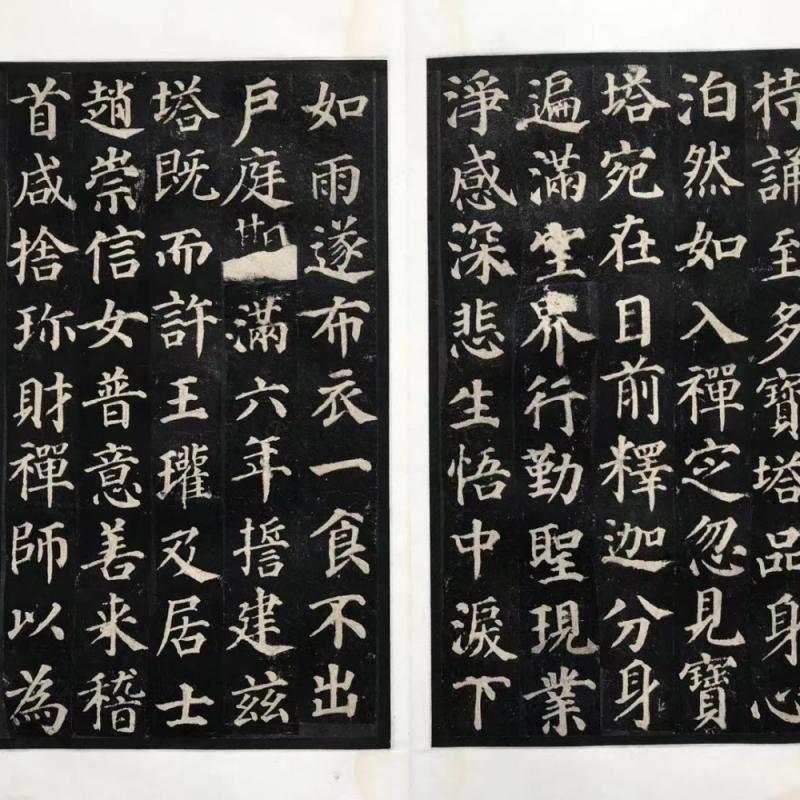 持誦至多寶塔品身心
泊然如入禪定忽見寶
塔宛在目前釋迦分身
遍滿空界行勤聖現業
淨感深悲生悟中淚下
如雨遂布衣一食不出
戶庭滿六年誓建茲
塔既而許王瓘及居士
趙崇信女普意善来稽
首咸捨珎財禪師以為